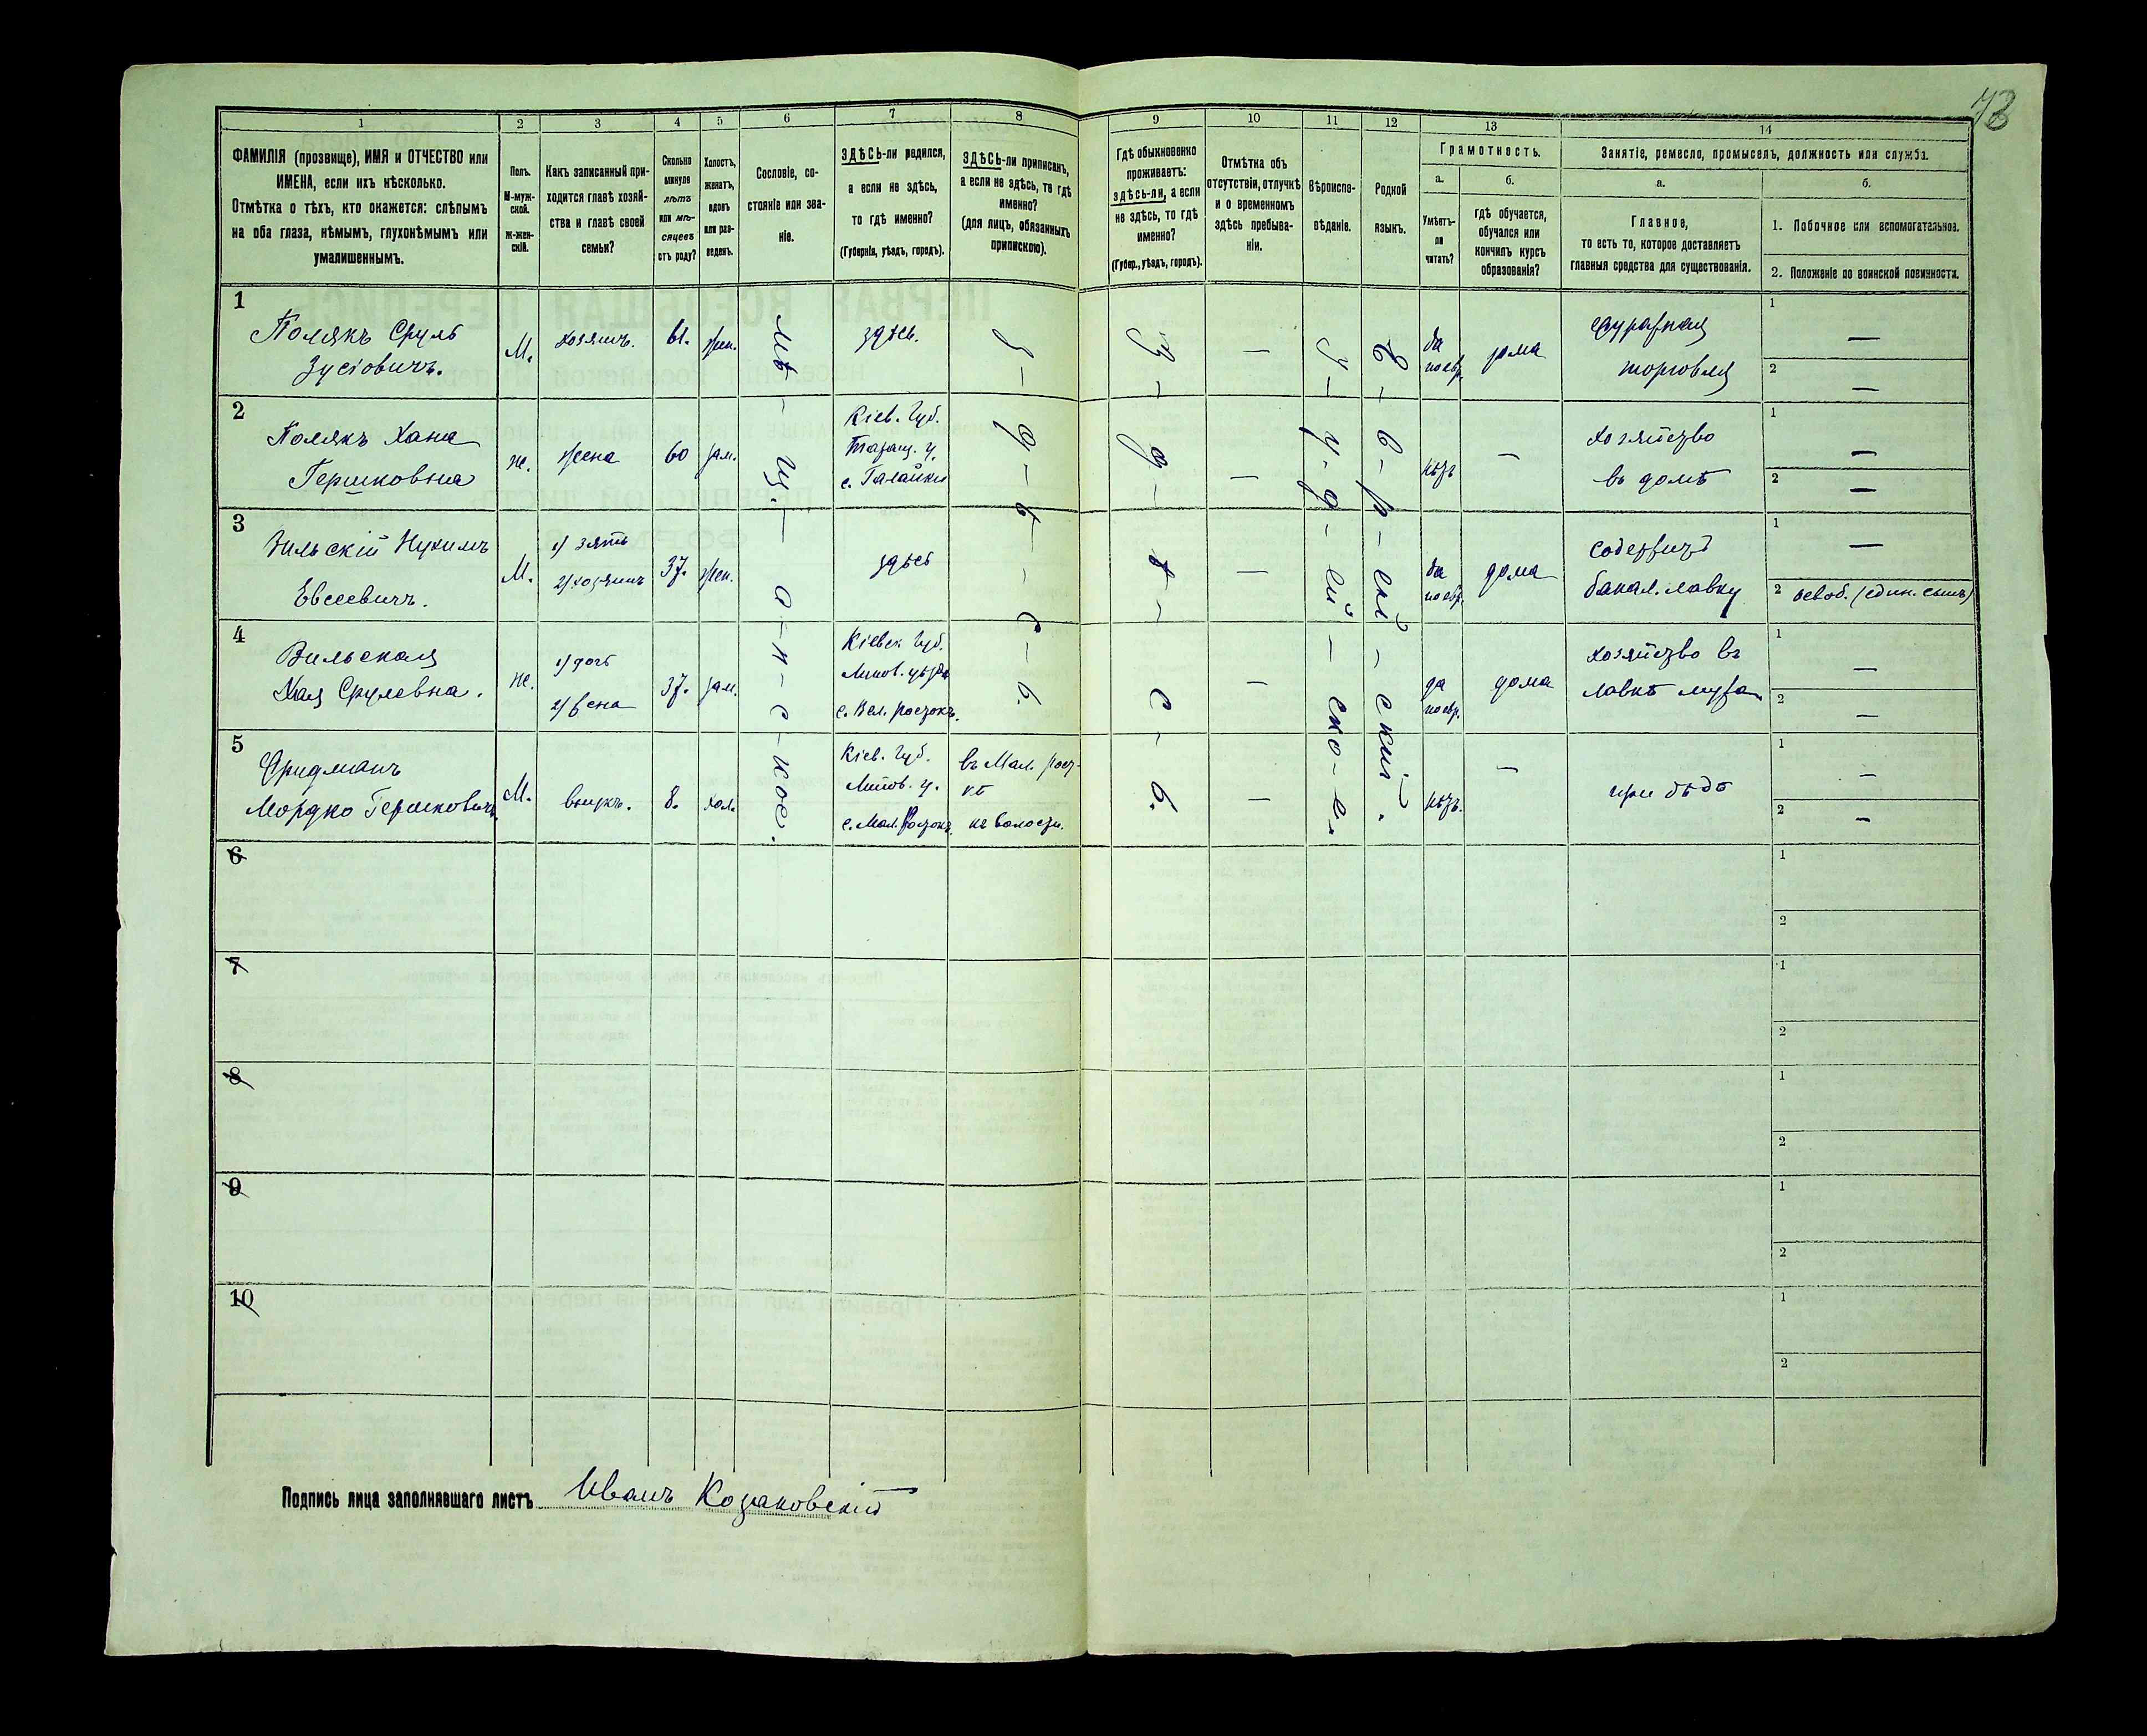 73
1
2
3
4
5
6
7
8
9
10
11
12
13
14
ФАМИЛІЯ (прозвище), ИМЯ и ОТЧЕСТВО или
ИМЕНА, если ихъ нѣсколько.
Отмѣтка о тѣхъ, кто окажется: слѣпымъ
на оба глаза, нѣмымъ, глухонѣмымъ или
умалишеннымъ.
Полъ.
М-муж-
ской.
Ж-жен-
скій.
Какъ записанный при-
ходится главѣ хозяй-
ства и главѣ своей
семьи?
Сколько
минуло
лѣтъ
или мѣ-
сяцевъ
отъ роду?
Холостъ,
женатъ,
вдовъ
или раз-
веденъ.
Сословіе, со-
стояніе или зва-
ніе.
ЗДѢСЬ-ли родился,
а если не здѣсь,
то гдѣ именно?
(Губернія, уѣздъ, городъ).
ЗДѢСЬ-ли приписанъ,
а если не здѣсь, то гдѣ
именно?
(для лицъ, обязанныхъ
припискою).
Гдѣ обыкновенно
проживаетъ:
здѣсь-ли, а если
не здѣсь, то гдѣ
именно?
(Губер., уѣздъ, городъ).
Отмѣтка объ
отсутствіи, отлучкѣ
и о временномъ
здѣсь пребыва-
ніи.
Вѣроиспо-
вѣданіе.
Родной
языкъ.
Грамотность.
а.
Умѣетъ-
ли
читать?
б.
гдѣ обучается,
обучался или
кончилъ курсъ
образованія?
Занятіе, ремесло, промыселъ, должность или служба.
а.
Главное,
то есть то, которое доставляетъ
главныя средства для существованія.
б.
1. Побочное или вспомогательное.
2. Положеніе по воинской повинности.
1
Полякъ Сруль
Зусіовичъ.
М.
хозяинъ.
61.
жен.
мѣ-щ.-а-н-с-кое.
здѣсь.
з-д-ѣ-с-ь.
з-д-ѣ-с-ь.
—
і-у-д-ей-ско-е.
е-в-р-ей-скій.
да
по евр.
дома
фуражная
торговля
1
—
2
—
2
Полякъ Хана
Гершковна
ж.
жена
60
зам.
Кіев. Губ.
Таращ. у.
с. Галайки
—
нѣтъ
—
хозяйство
въ домѣ
1
—
2
—
3
Вильскій Нухимъ
Евсеевичъ.
М.
1) зять
2) хозяинъ
37.
жен.
здѣсь
—
да
по евр.
дома
содержитъ
бакал. лавку
1
—
2 освоб. (един. сынъ)
4
Вильская
Хая Срулевна.
ж.
1) дочь
2) жена
37.
зам.
Кіевск. Губ.
Липов. уѣзда
с. Вел. Ростокъ.
—
да
по евр.
дома
хозяйство въ
лавкѣ мужа
1
—
2
—
5
Фридманъ
Мордко Гершковичъ.
М.
внукъ.
8.
хол.
Кіев. Губ.
Липов. у.
с. Мал. Ростокъ.
въ Мал. Рост-
кѣ
къ волости.
—
нѣтъ.
—
при дѣдѣ
1
—
2
—
6
1
2
7
1
2
8
1
2
9
1
2
10
1
2
Подпись лица заполнявшаго листъ Иванъ Козаковскій